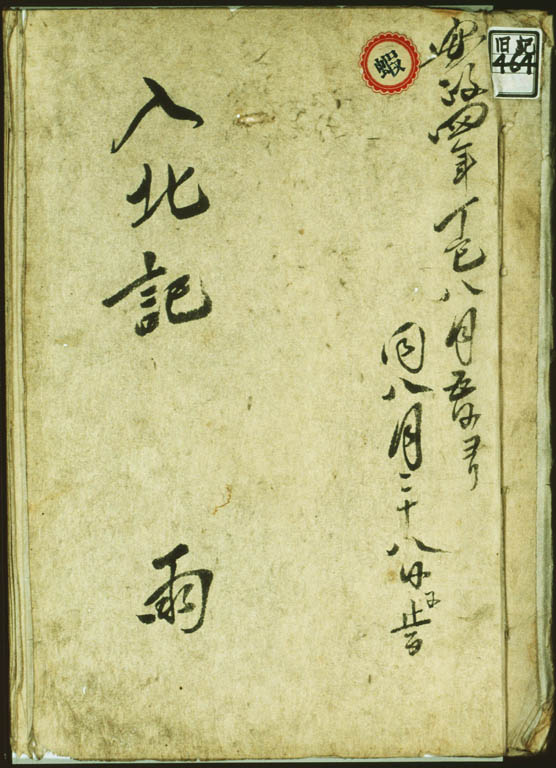 旧記
464
蝦
安政四年丁巳八月五日ヨリ
同八月二十八日
入北記
雨